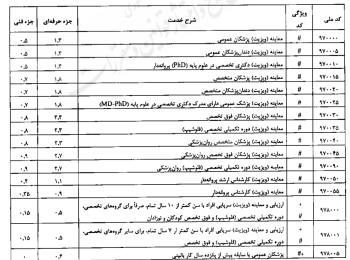 کد ملی ویژگی کد شرح خدمت جزء حرفه‌ای جزء فنی
۹۷۰۰۰۰ # معاینه (ویزیت) پزشکان عمومی ۱,۳ ۰,۵
۹۷۰۰۰۵ # معاینه (ویزیت) دندان‌پزشکان عمومی ۱,۳ ۰,۵
۹۷۰۰۱۰ # معاینه (ویزیت) دکتری تخصصی در علوم پایه (PhD) پروانه‌دار ۱,۳ ۰,۵
۹۷۰۰۱۵ # معاینه (ویزیت) پزشکان متخصص ۱,۸ ۰,۷
۹۷۰۰۲۰ # معاینه (ویزیت) دندان‌پزشکان متخصص ۱,۸ ۰,۷
۹۷۰۰۲۵ # معاینه (ویزیت) پزشک عمومی دارای مدرک دکتری تخصصی در علوم پایه (MD-PhD) ۱,۸ ۰,۷
۹۷۰۰۳۰ # معاینه (ویزیت) پزشکان فوق تخصص ۲,۳ ۰,۸
۹۷۰۰۳۵ # معاینه (ویزیت) دوره تکمیلی تخصصی (فلوشیپ) ۲,۳ ۰,۸
۹۷۰۰۴۰ # معاینه (ویزیت) پزشکان متخصص روان‌پزشکی ۲,۳ ۰,۸
۹۷۰۰۴۵ # معاینه (ویزیت) پزشکان فوق تخصص روان‌پزشکی ۲,۷ ۰,۹
# معاینه (ویزیت) دوره تکمیلی تخصصی (فلوشیپ) روان‌پزشکی ۲,۷ ۰,۹
۹۷۰۰۵۰ # معاینه (ویزیت) کارشناس ارشد پروانه‌دار ۱,۱ ۰,۴
۹۷۰۰۵۵ # معاینه (ویزیت) کارشناس پروانه‌دار ۰,۹ ۰,۳۵
۹۷۸۰۰۰ + ارزیابی و معاینه (ویزیت) سرپایی افراد با سن کمتر از ۱۰ سال تمام، صرفاً برای گروه‌های تخصصی، ۰,۵ ۰,۱۵
دوره تکمیلی تخصصی (فلوشیپ) و فوق تخصص کودکان و نوزادان
۹۷۸۰۰۱ + ارزیابی و معاینه (ویزیت) سرپایی افراد با سن کمتر از ۷ سال تمام، برای سایر گروه‌های تخصصی، ۰,۵ ۰,۱۵
دوره تکمیلی تخصصی (فلوشیپ) و فوق تخصص
۹۷۸۰۰۵ #+ پزشکان عمومی با سابقه بیش از پانزده سال کار بالینی ۰,۴